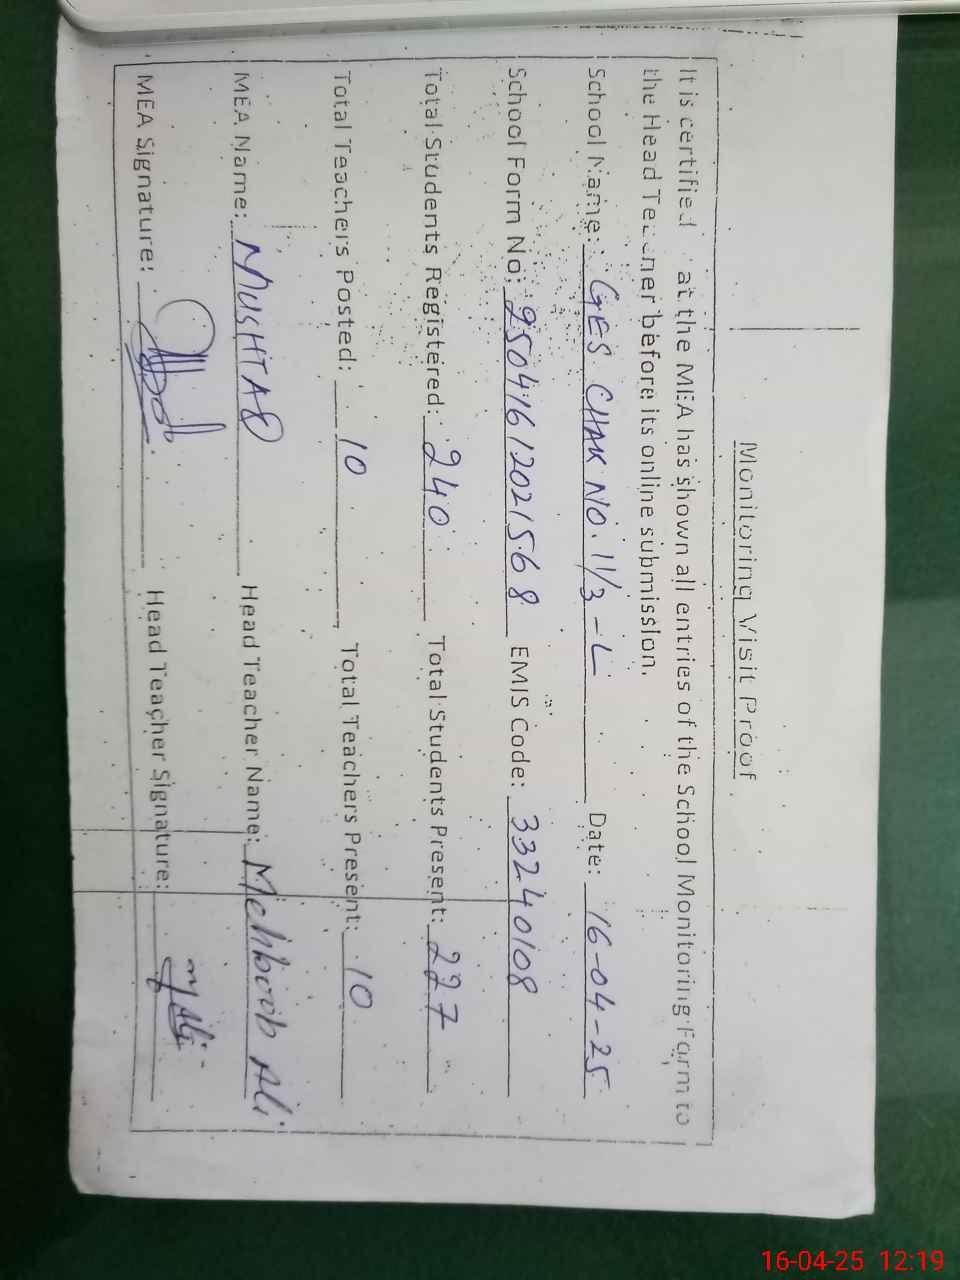 Monitoring Visit Proof
It is certified at the MEA has shown all entries of the School Monitoring Form to
the Head Teacher before its online submission.
School Name: GES CHAK NO. 11/3-L Date: 16-04-25
School Form No: 95041612021568 EMIS Code: 33240108
Total Students Registered: 240 Total Students Present: 227
Total Teachers Posted: 10 Total Teachers Present: 10
MEA Name: MUSHTAQ Head Teacher Name: Mehboob Ali
MEA Signature: Head Teacher Signature:
16-04-25 12:19